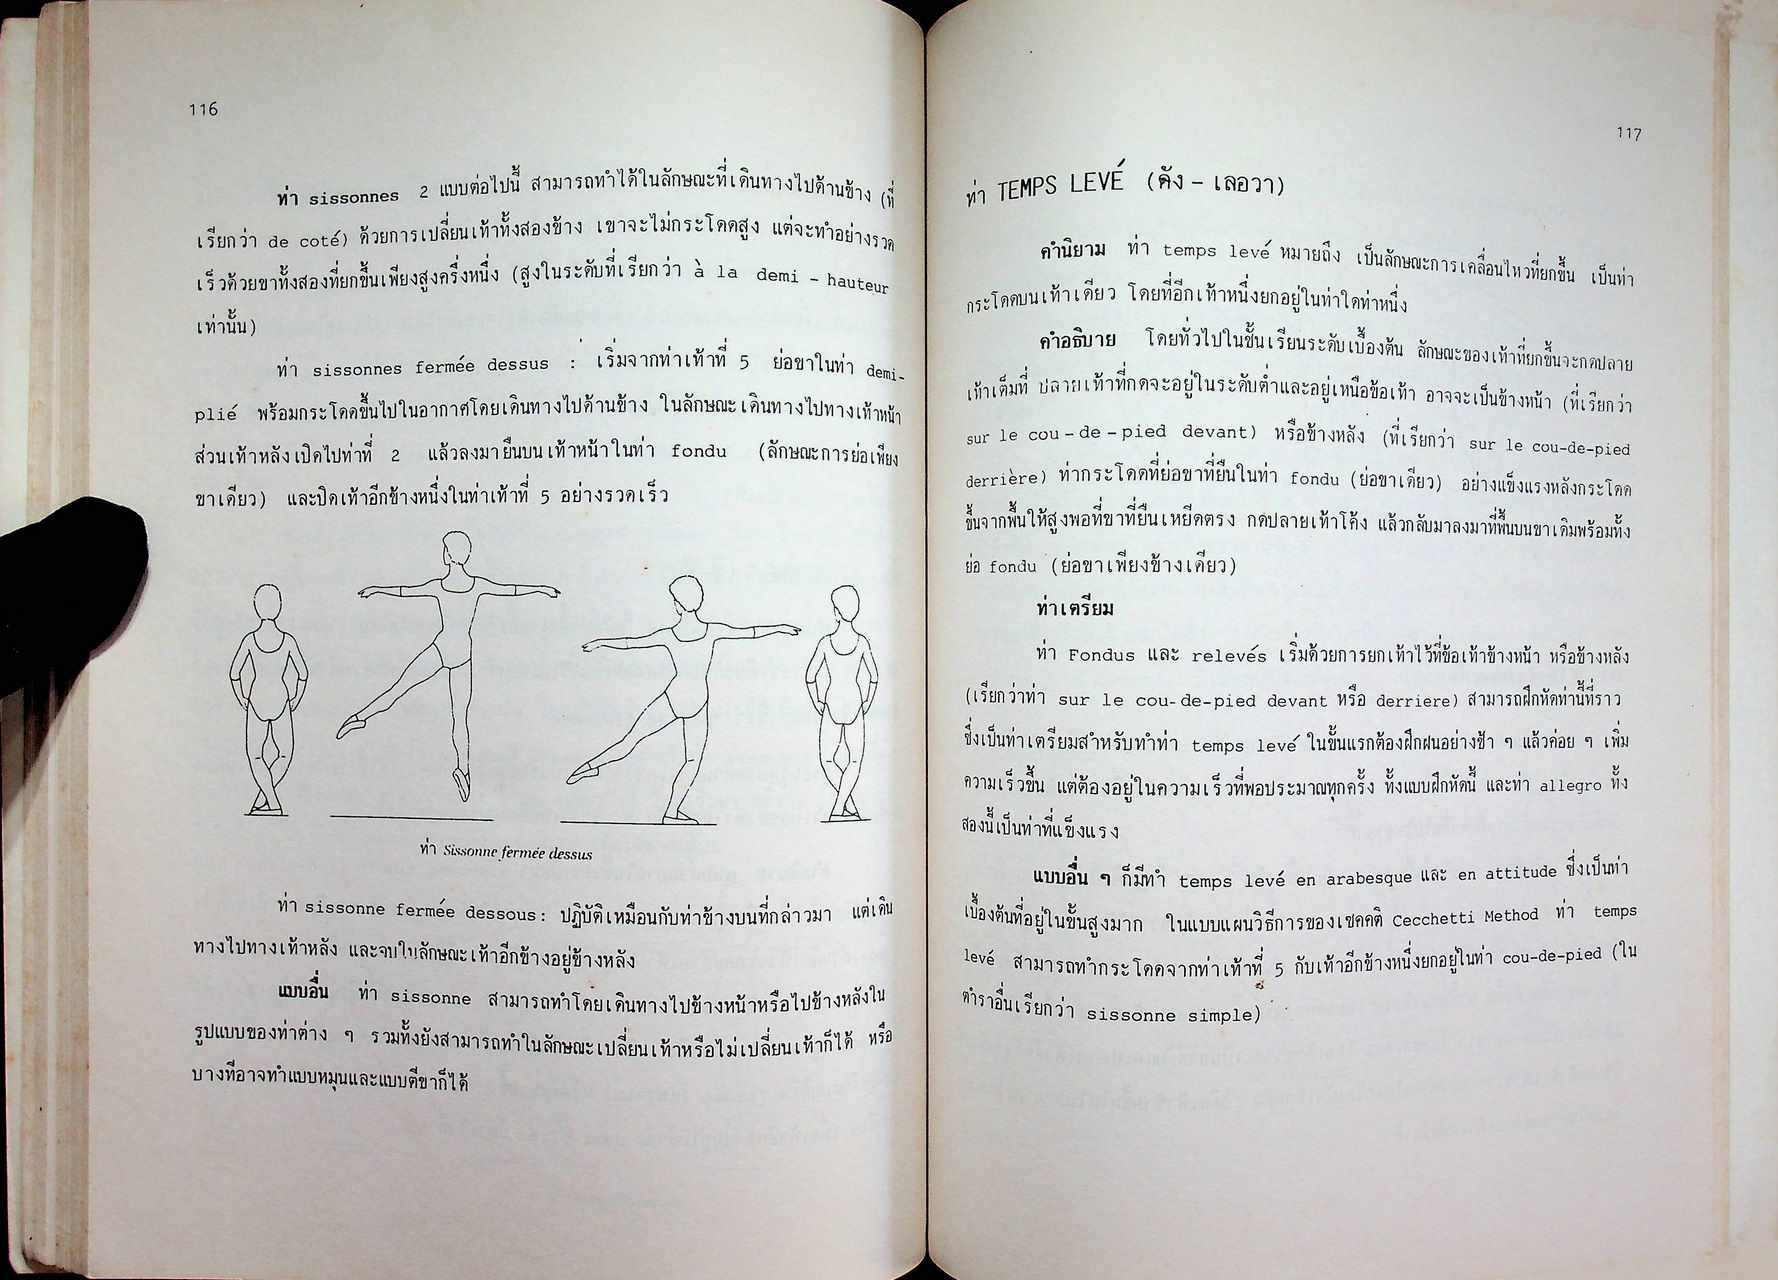 116
ท่า sissonnes 2 แบบต่อไปนี้ สามารถทำได้ในลักษณะที่เดินทางไปด้านข้าง (ที่
เรียกว่า de coté) ด้วยการเปลี่ยนเท้าทั้งสองข้าง เขาจะไม่กระโดดสูง แต่จะทำอย่างรวด
เร็วด้วยขาทั้งสองที่ยกขึ้นเพียงสูงครึ่งหนึ่ง (สูงในระดับที่เรียกว่า à la demi - hauteur
เท่านั้น)
ท่า sissonnes fermée dessus : เริ่มจากท่าเท้าที่ 5 ย่อขาในท่า demi-
plié พร้อมกระโดดขึ้นไปในอากาศโดยเดินทางไปด้านข้าง ในลักษณะเดินทางไปทางเท้าหน้า
ส่วนเท้าหลังเปิดไปท่าที่ 2 แล้วลงมายืนบนเท้าหน้าในท่า fondu (ลักษณะการย่อเพียง
ขาเดียว) และปิดเท้าอีกข้างหนึ่งในท่าเท้าที่ 5 อย่างรวดเร็ว
ท่า Sissonne fermée dessus
ท่า sissonne fermée dessous: ปฏิบัติเหมือนกับท่าข้างบนที่กล่าวมา แต่เดิน
ทางไปทางเท้าหลัง และจบในลักษณะเท้าอีกข้างอยู่ข้างหลัง
แบบอื่น ท่า sissonne สามารถทำโดยเดินทางไปข้างหน้าหรือไปข้างหลังใน
รูปแบบของท่าต่าง ๆ รวมทั้งยังสามารถทำในลักษณะเปลี่ยนเท้าหรือไม่เปลี่ยนเท้าก็ได้ หรือ
บางทีอาจทำแบบหมุนและแบบตีขาก็ได้
117
ท่า TEMPS LEVÉ (ตัง - เลอวา)
คำนิยาม ท่า temps levé หมายถึง เป็นลักษณะการเคลื่อนไหวที่ยกขึ้น เป็นท่า
กระโดดบนเท้าเดียว โดยที่อีกเท้าหนึ่งยกอยู่ในท่าใดท่าหนึ่ง
คำอธิบาย โดยทั่วไปในชั้นเรียนระดับเบื้องต้น ลักษณะของเท้าที่ยกขึ้นจะกดปลาย
เท้าเต็มที่ ปลายเท้าที่กดจะอยู่ในระดับต่ำและอยู่เหนือข้อเท้า อาจจะเป็นข้างหน้า (ที่เรียกว่า
sur le cou - de - pied devant) หรือข้างหลัง (ที่เรียกว่า sur le cou-de-pied
derrière) ท่ากระโดดที่ย่อขาที่ยืนในท่า fondu (ย่อขาเดียว) อย่างแข็งแรงหลังกระโดด
ขึ้นจากพื้นให้สูงพอที่ขาที่ยืนเหยียดตรง กดปลายเท้าโค้ง แล้วกลับมาลงมาที่พื้นบนขาเดิมพร้อมทั้ง
ย่อ fondu (ย่อขาเพียงข้างเดียว)
ท่าเตรียม
ท่า Fondus และ relevés เริ่มด้วยการยกเท้าไว้ที่ข้อเท้าข้างหน้า หรือข้างหลัง
(เรียกว่าท่า sur le cou-de-pied devant หรือ derriere) สามารถฝึกหัดท่านี้ที่ราว
ซึ่งเป็นท่าเตรียมสำหรับทำท่า temps levé ในขั้นแรกต้องฝึกฝนอย่างช้า ๆ แล้วค่อย ๆ เพิ่ม
ความเร็วขึ้น แต่ต้องอยู่ในความเร็วที่พอประมาณทุกครั้ง ทั้งแบบฝึกหัดนี้ และท่า allegro ทั้ง
สองนี้เป็นท่าที่แข็งแรง
แบบอื่น ๆ ก็มีทำ temps levé en arabesque และ en attitude ซึ่งเป็นท่า
เบื้องต้นที่อยู่ในขั้นสูงมาก ในแบบแผนวิธีการของเชคคติ Cecchetti Method ท่า temps
levé สามารถทำกระโดดจากท่าเท้าที่ 5 กับเท้าอีกข้างหนึ่งยกอยู่ในท่า cou-de-pied (ใน
ตำราอื่นเรียกว่า sissonne simple)